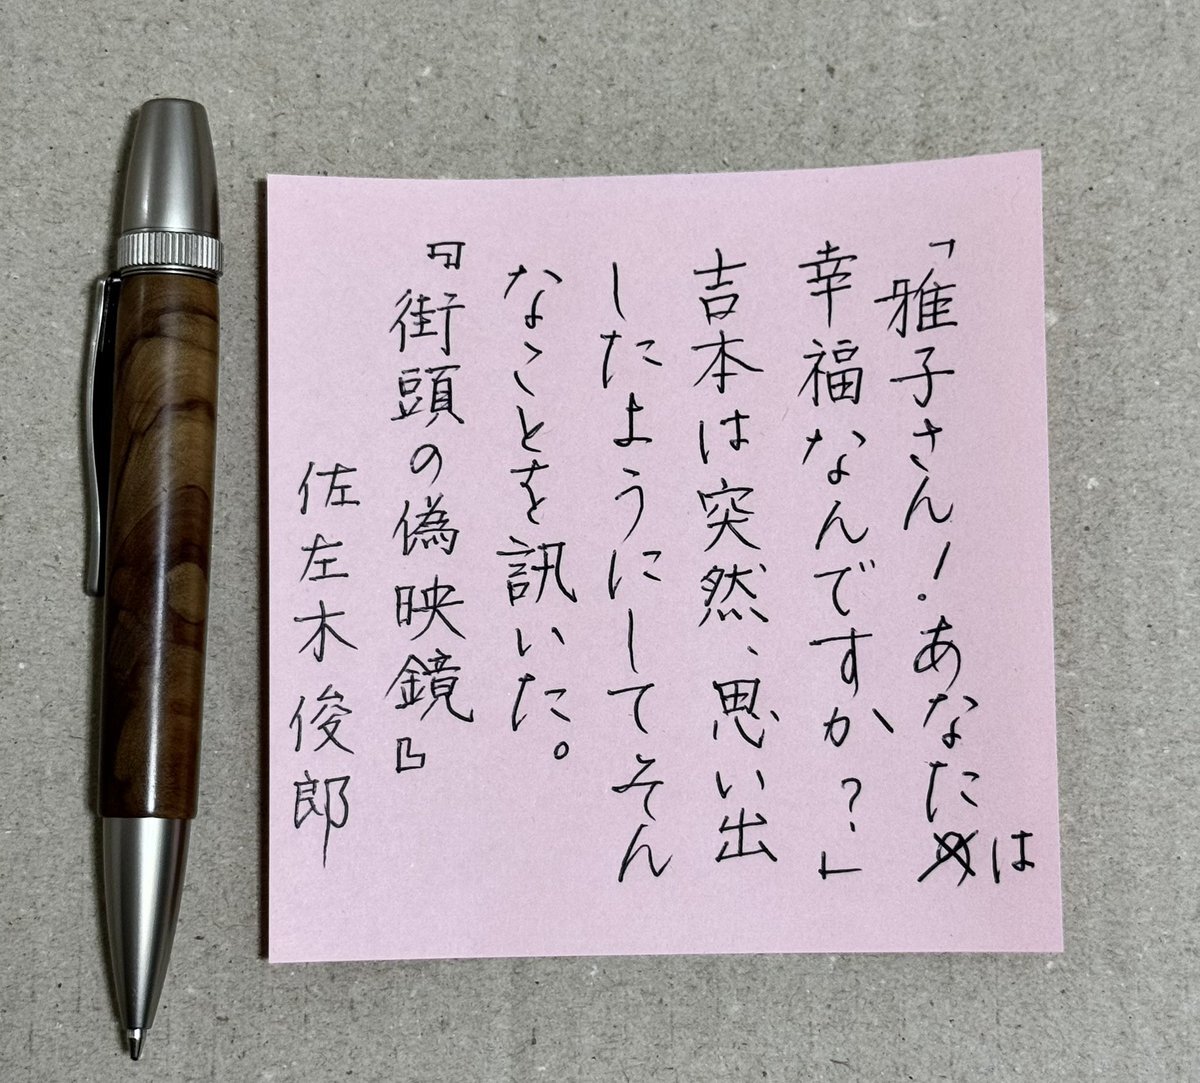 「雅子さん！あなたは
幸福なんですか？」
吉本は突然、思い出
したようにしてそん
なことを訊いた。
『街頭の偽映鏡』
佐左木俊郎